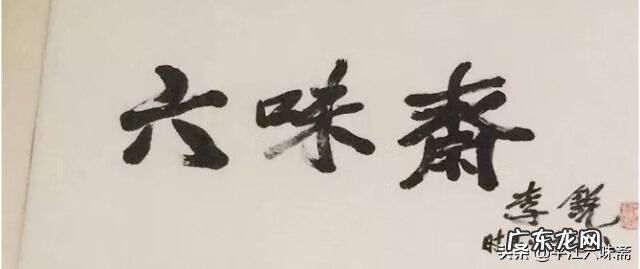 六味斋
李锐
时
广东龙网
头条@平江六味斋